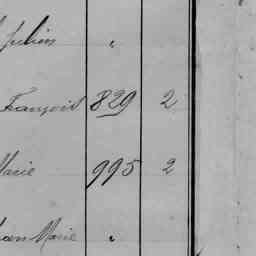 Julien "
François 829 2
Marie 995 2
Jean Marie "